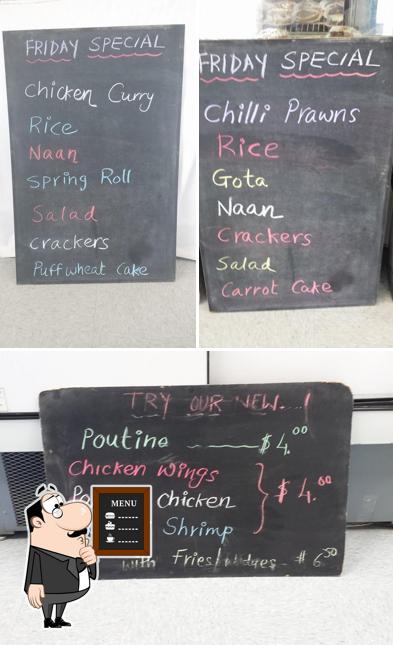 FRIDAY SPECIAL
Chicken Curry
Rice
Naan
Spring Roll
Salad
crackers
Puffwheat Cake
FRIDAY SPECIAL
Chilli Prawns
Rice
Gota
Naan
Crackers
Salad
Carrot Cake
TRY OUR NEW...!
Poutine $4.00
Chicken Wings
Chicken $4.00
Shrimp
with Fries/wedges - $6.50
MENU